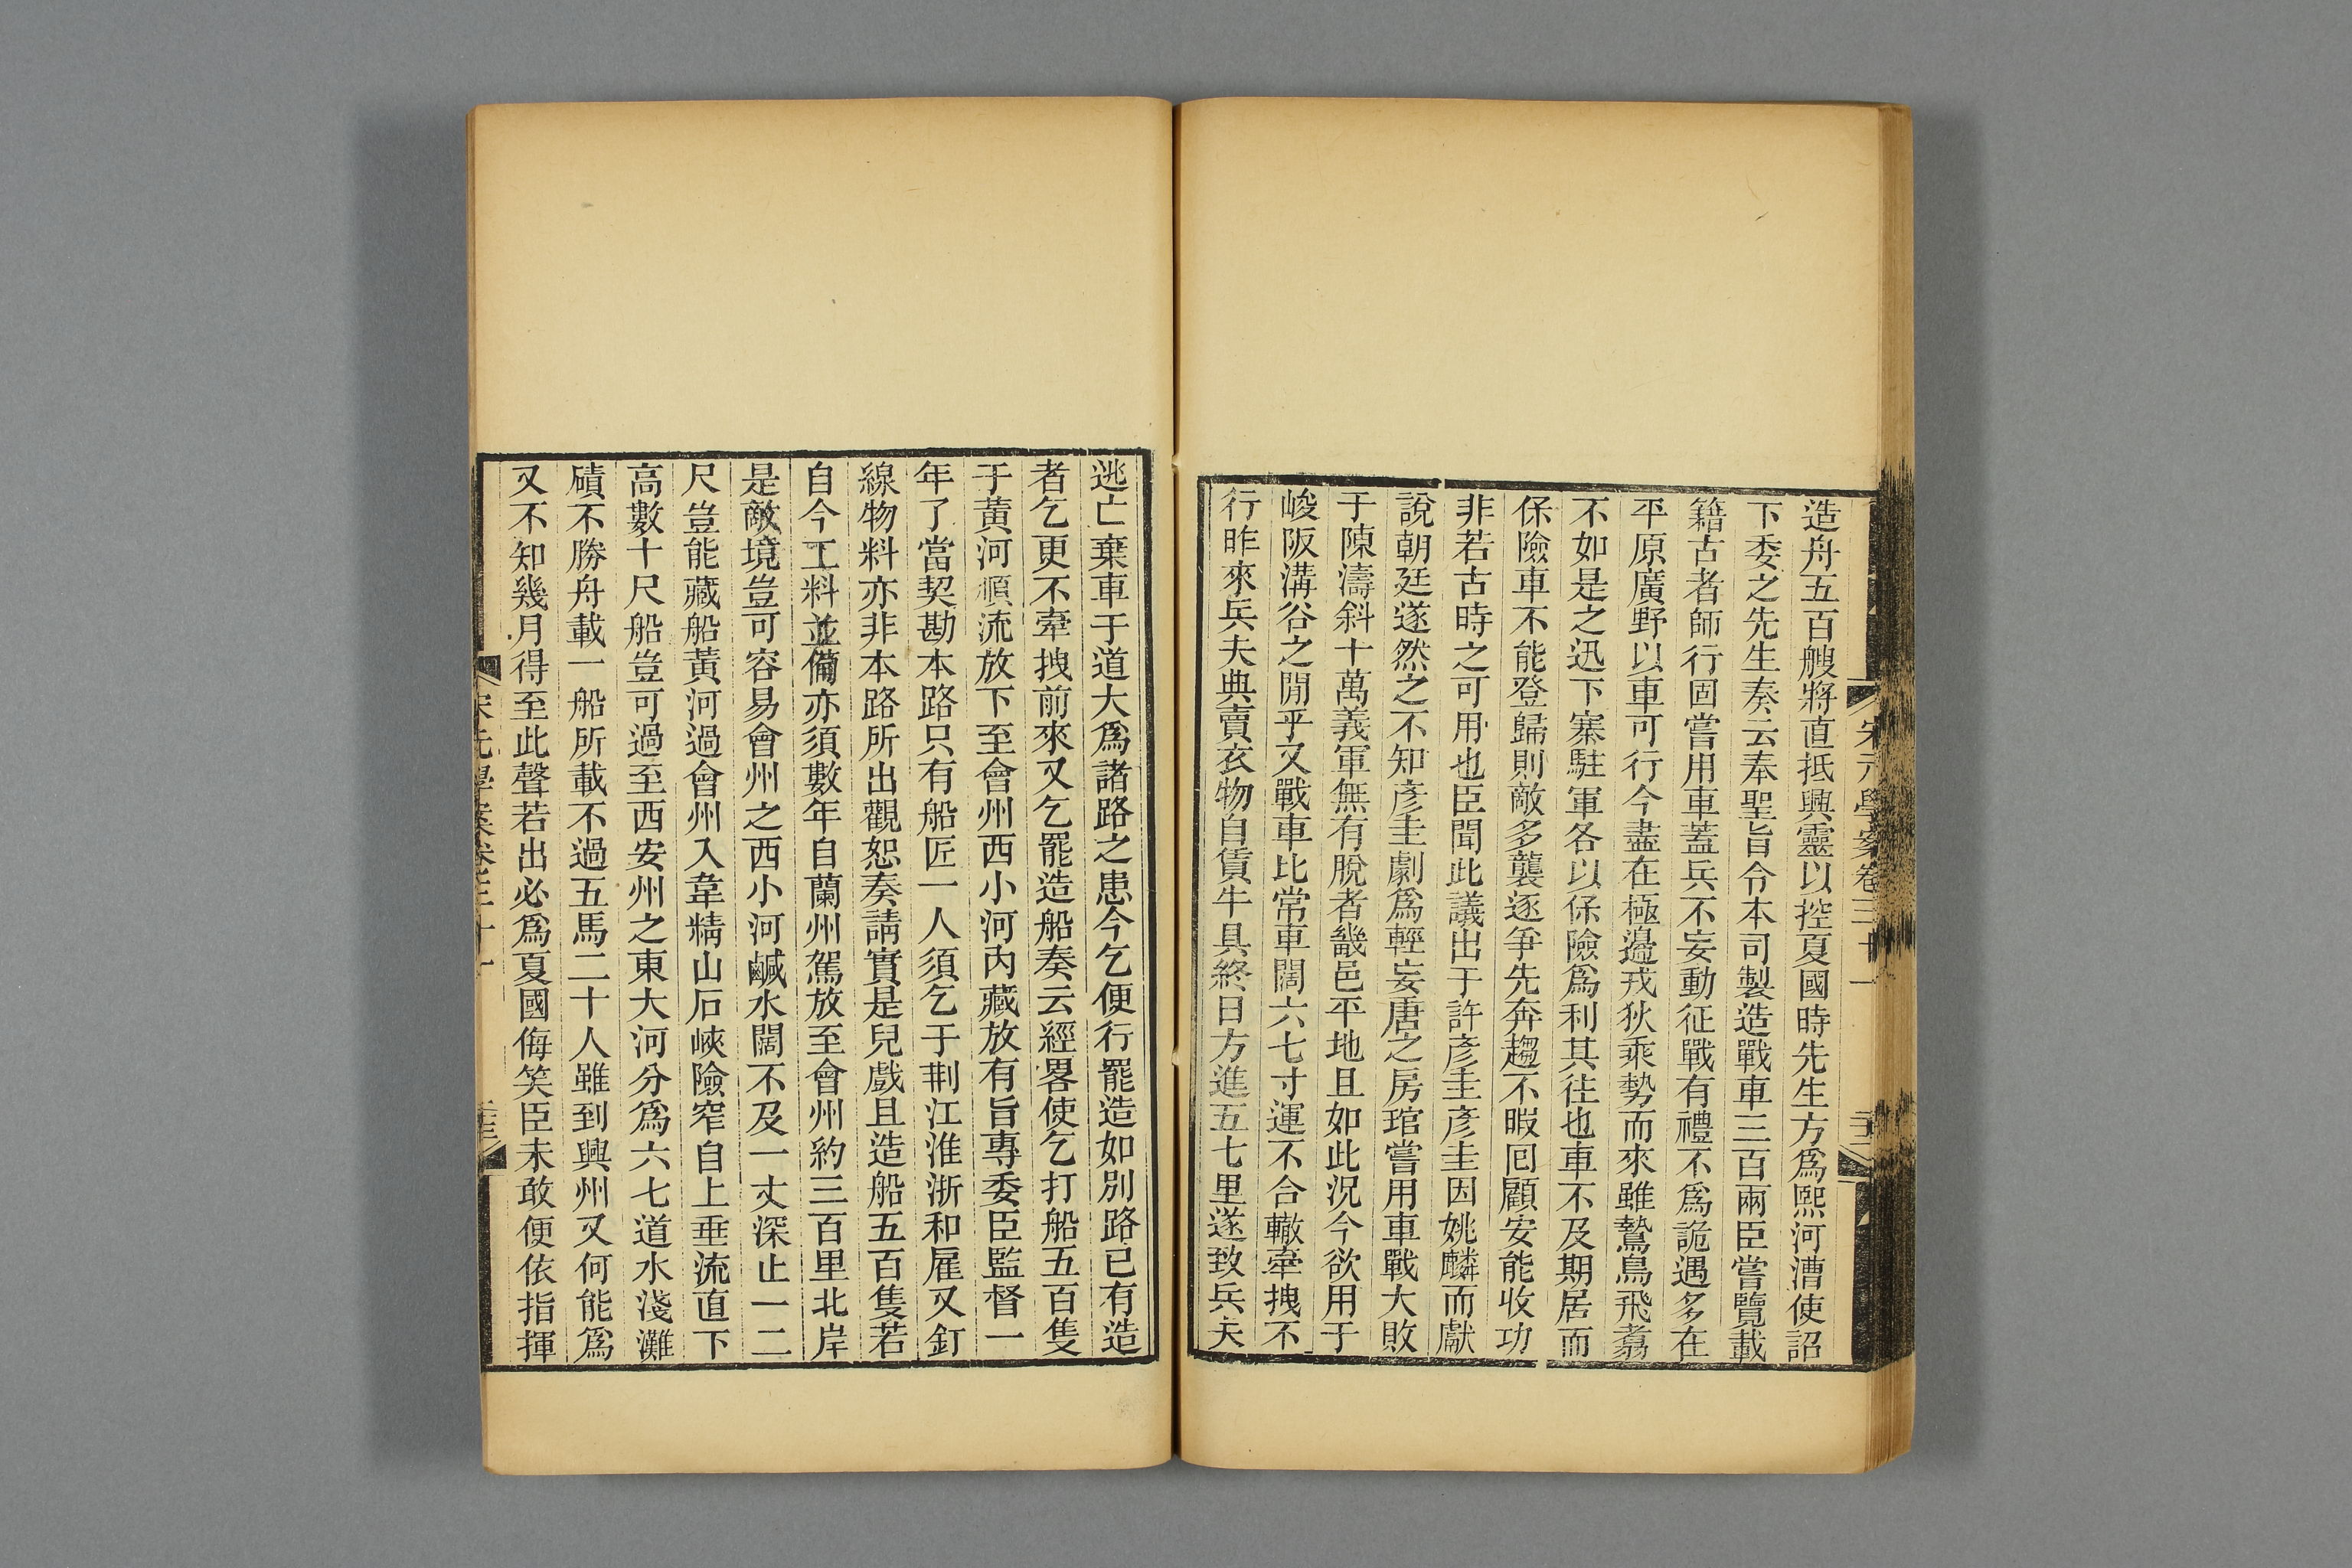 造舟五百艘將直抵興靈以控夏國時先生方爲熙河漕使詔
下委之先生奏云奉聖旨令本司製造戰車三百兩臣嘗覽載
籍古者師行固嘗用車蓋兵不妄動征戰有禮不爲詭遇多在
平原廣野以車可行今盡在極邊戎狄乘勢而來雖鷙鳥飛翥
不如是之迅下寨駐軍各以保險爲利其往也車不及期居而
保險車不能登歸則敵多襲逐爭先奔趨不暇回顧安能收功
非若古時之可用也臣聞此議出于許彥圭彥圭因姚麟而獻
說朝廷遂然之不知彥圭劇爲輕妄唐之房琯嘗用車戰大敗
于陳濤斜十萬義軍無有脫者畿邑平地且如此況今欲用于
峻阪溝谷之閒乎又戰車比常車闊六七寸運不合轍牽拽不
行昨來兵夫典賣衣物自賃牛具終日方進五七里遂致兵夫
宋元學案卷三十一
逃亡棄車于道大爲諸路之患今乞便行罷造如別路已有造
者乞更不牽拽前來又乞罷造船奏云經畧使乞打船五百隻
于黃河順流放下至會州西小河內藏放有旨專委臣監督一
年了當契勘本路只有船匠一人須乞于荆江淮浙和雇又釘
線物料亦非本路所出觀恕奏請實是兒戲且造船五百隻若
自今工料並備亦須數年自蘭州駕放至會州約三百里北岸
是敵境豈可容易會州之西小河鹹水闊不及一丈深止一二
尺豈能藏船黃河過會州入韋精山石峽險窄自上垂流直下
高數十尺船豈可過至西安州之東大河分爲六七道水淺灘
磧不勝舟載一船所載不過五馬二十人雖到興州又何能爲
又不知幾月得至此聲若出必爲夏國侮笑臣未敢便依指揮
宋元學案卷三十一